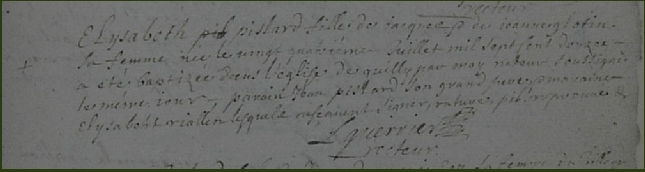 recteur
Elysabeth pistard fille de jacque et de jeanne glotin
sa femme née le vingt quatrième Juillet mil sept cent douze
a été baptizée dans l'église de quilly par moy recteur soussigné
le meme iour parain jean pistard son grand pere et maraine
Elysabeht riallen lesquels ne scavent signer, rature
Guerrier
recteur